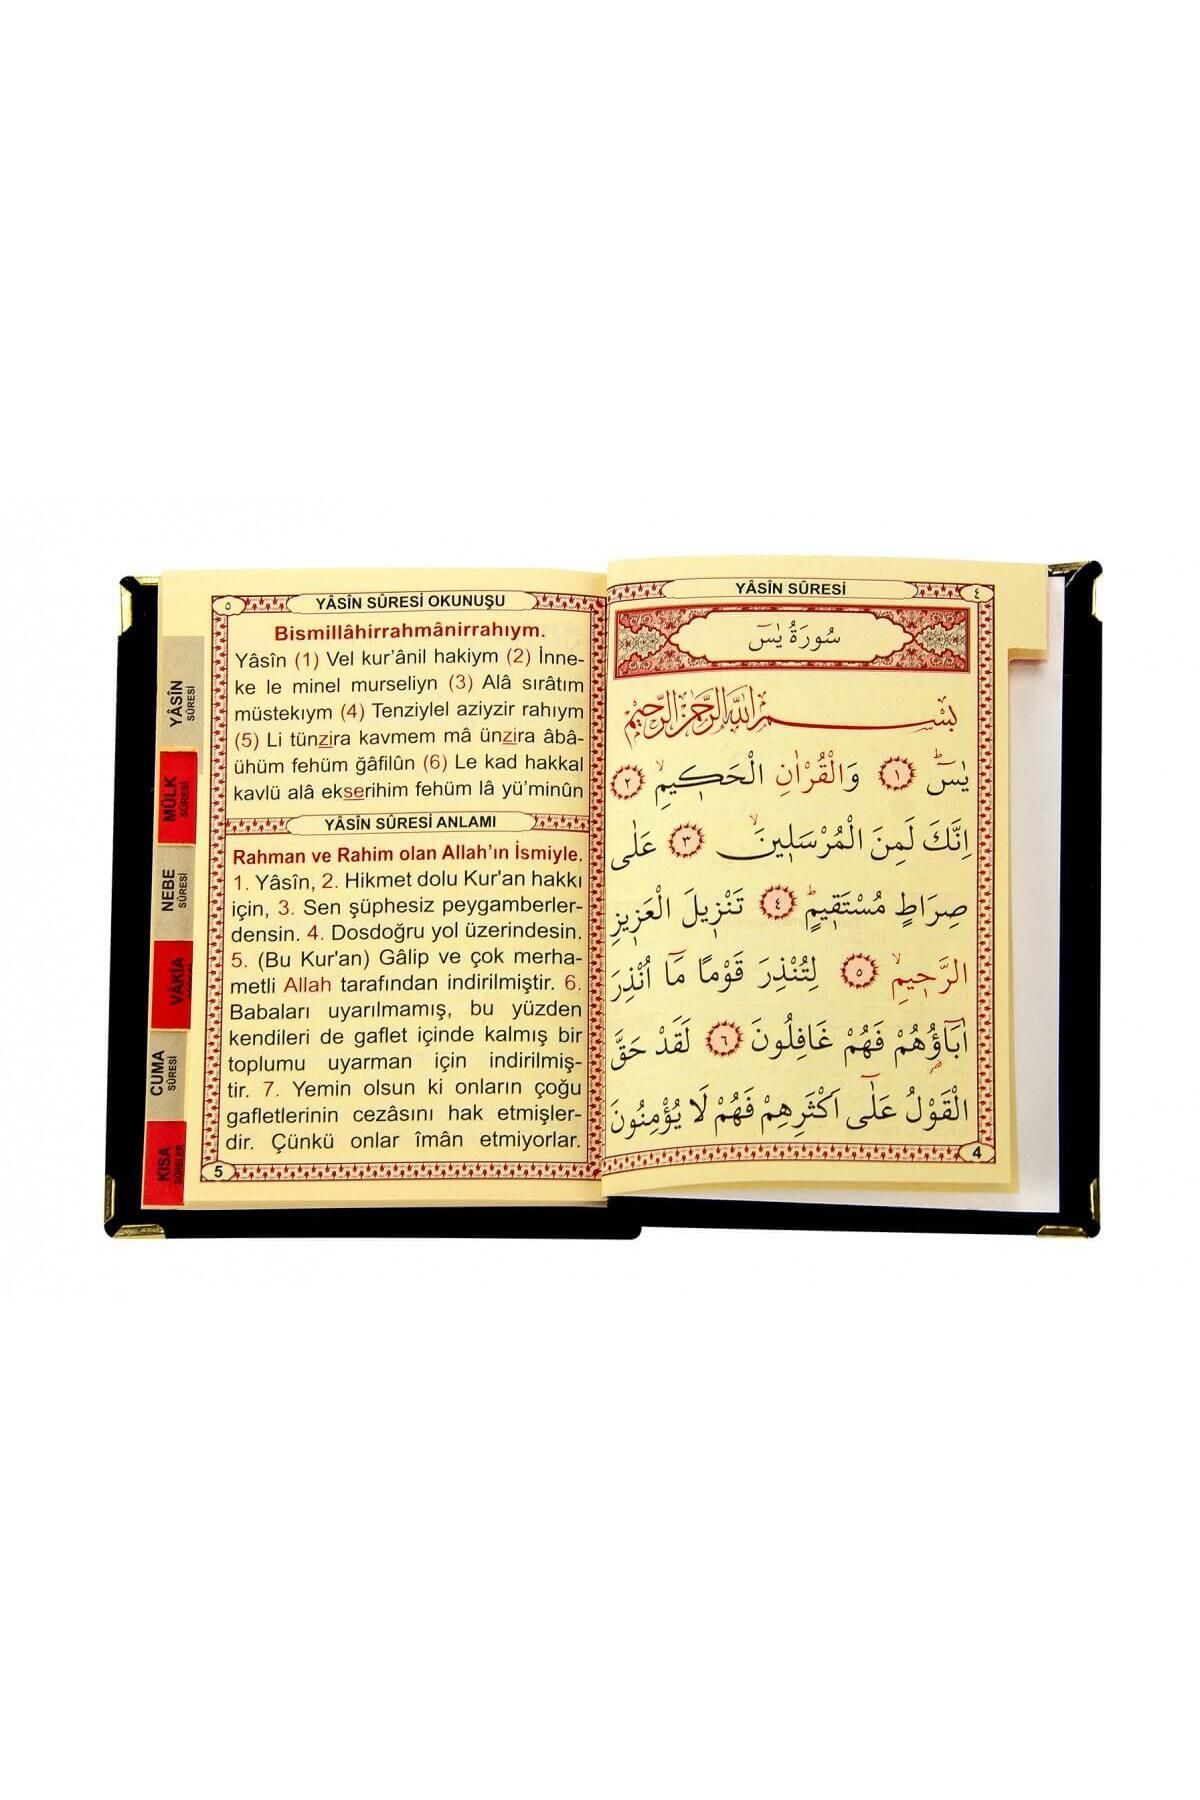 YÂSİN
SÛRESİ
MÜLK
SÛRESİ
NEBE
SÛRESİ
VÂKİA
CUMA
SÛRESİ
KISA
SÛRELER
٥
YÂSÎN SÛRESİ OKUNUŞU
Bismillâhirrahmânirrahıym.
Yâsîn (1) Vel kur’ânil hakiym (2) İnne-
ke le minel murseliyn (3) Alâ sırâtım
müstekıym (4) Tenziylel aziyzir rahıym
(5) Li tünzira kavmem mâ ünzira âbâ-
ühüm fehüm ğâfilûn (6) Le kad hakkal
kavlü alâ ekserihim fehüm lâ yü’minûn
YÂSÎN SÛRESİ ANLAMI
Rahman ve Rahim olan Allah’ın İsmiyle.
1. Yâsîn, 2. Hikmet dolu Kur'an hakkı
için, 3. Sen şüphesiz peygamberler-
densin. 4. Dosdoğru yol üzerindesin.
5. (Bu Kur'an) Gâlip ve çok merha-
metli Allah tarafından indirilmiştir. 6.
Babaları uyarılmamış, bu yüzden
kendileri de gaflet içinde kalmış bir
toplumu uyarman için indirilmiş-
tir. 7. Yemin olsun ki onların çoğu
gafletlerinin cezâsını hak etmişler-
dir. Çünkü onlar îmân etmiyorlar.
5
YÂSÎN SÛRESİ
٤
سُورَةُ يٰسٓ
بِسْمِ اللّٰهِ الرَّحْمٰنِ الرَّحِيمِ
يٰسٓ ۚ ﴿١﴾ وَالْقُرْاٰنِ الْحَكِيمِ ۙ ﴿٢﴾
اِنَّكَ لَمِنَ الْمُرْسَلِينَ ۙ ﴿٣﴾ عَلٰى
صِرَاطٍ مُسْتَقِيمٍ ۜ ﴿٤﴾ تَنْزِيلَ الْعَزِيزِ
الرَّحِيمِ ۙ ﴿٥﴾ لِتُنْذِرَ قَوْمًا مَٓا اُنْذِرَ
اٰبَٓاؤُ۬هُمْ فَهُمْ غَافِلُونَ ﴿٦﴾ لَقَدْ حَقَّ
الْقَوْلُ عَلٰٓى اَكْثَرِهِمْ فَهُمْ لَا يُؤْمِنُونَ
4